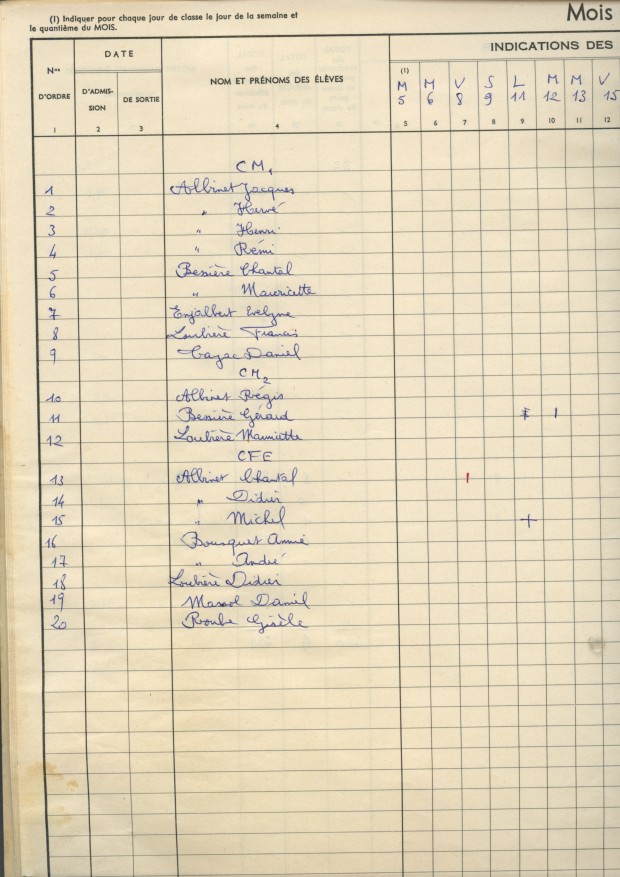 (I) Indiquer pour chaque jour de classe le jour de la semaine et
le quantième du MOIS.
Mois
INDICATIONS DES
Nos D'ORDRE
DATE
D'ADMIS-
SION
DE SORTIE
NOM ET PRÉNOMS DES ÉLÈVES
(1)
M M V S L M M V
5 6 8 9 11 12 13 15
1 2 3 4 5 6 7 8 9 10 11 12
CM1
1 Albinet Jacques
2 " Hervé
3 " Henri
4 " Rémi
5 Bessière Chantal
6 " Mauricette
7 Enjalbert Evelyne
8 Loubière Francis
9 Cayzac Daniel
CM2
10 Albinet Régis
11 Bessière Gérard
12 Loubière
CFE
13 Albinet Chantal
14 " Didier
15 " Michel
16 Bousquet Annie
17 " André
18 Loubière Didier
19 Massol Daniel
20 Gisèle